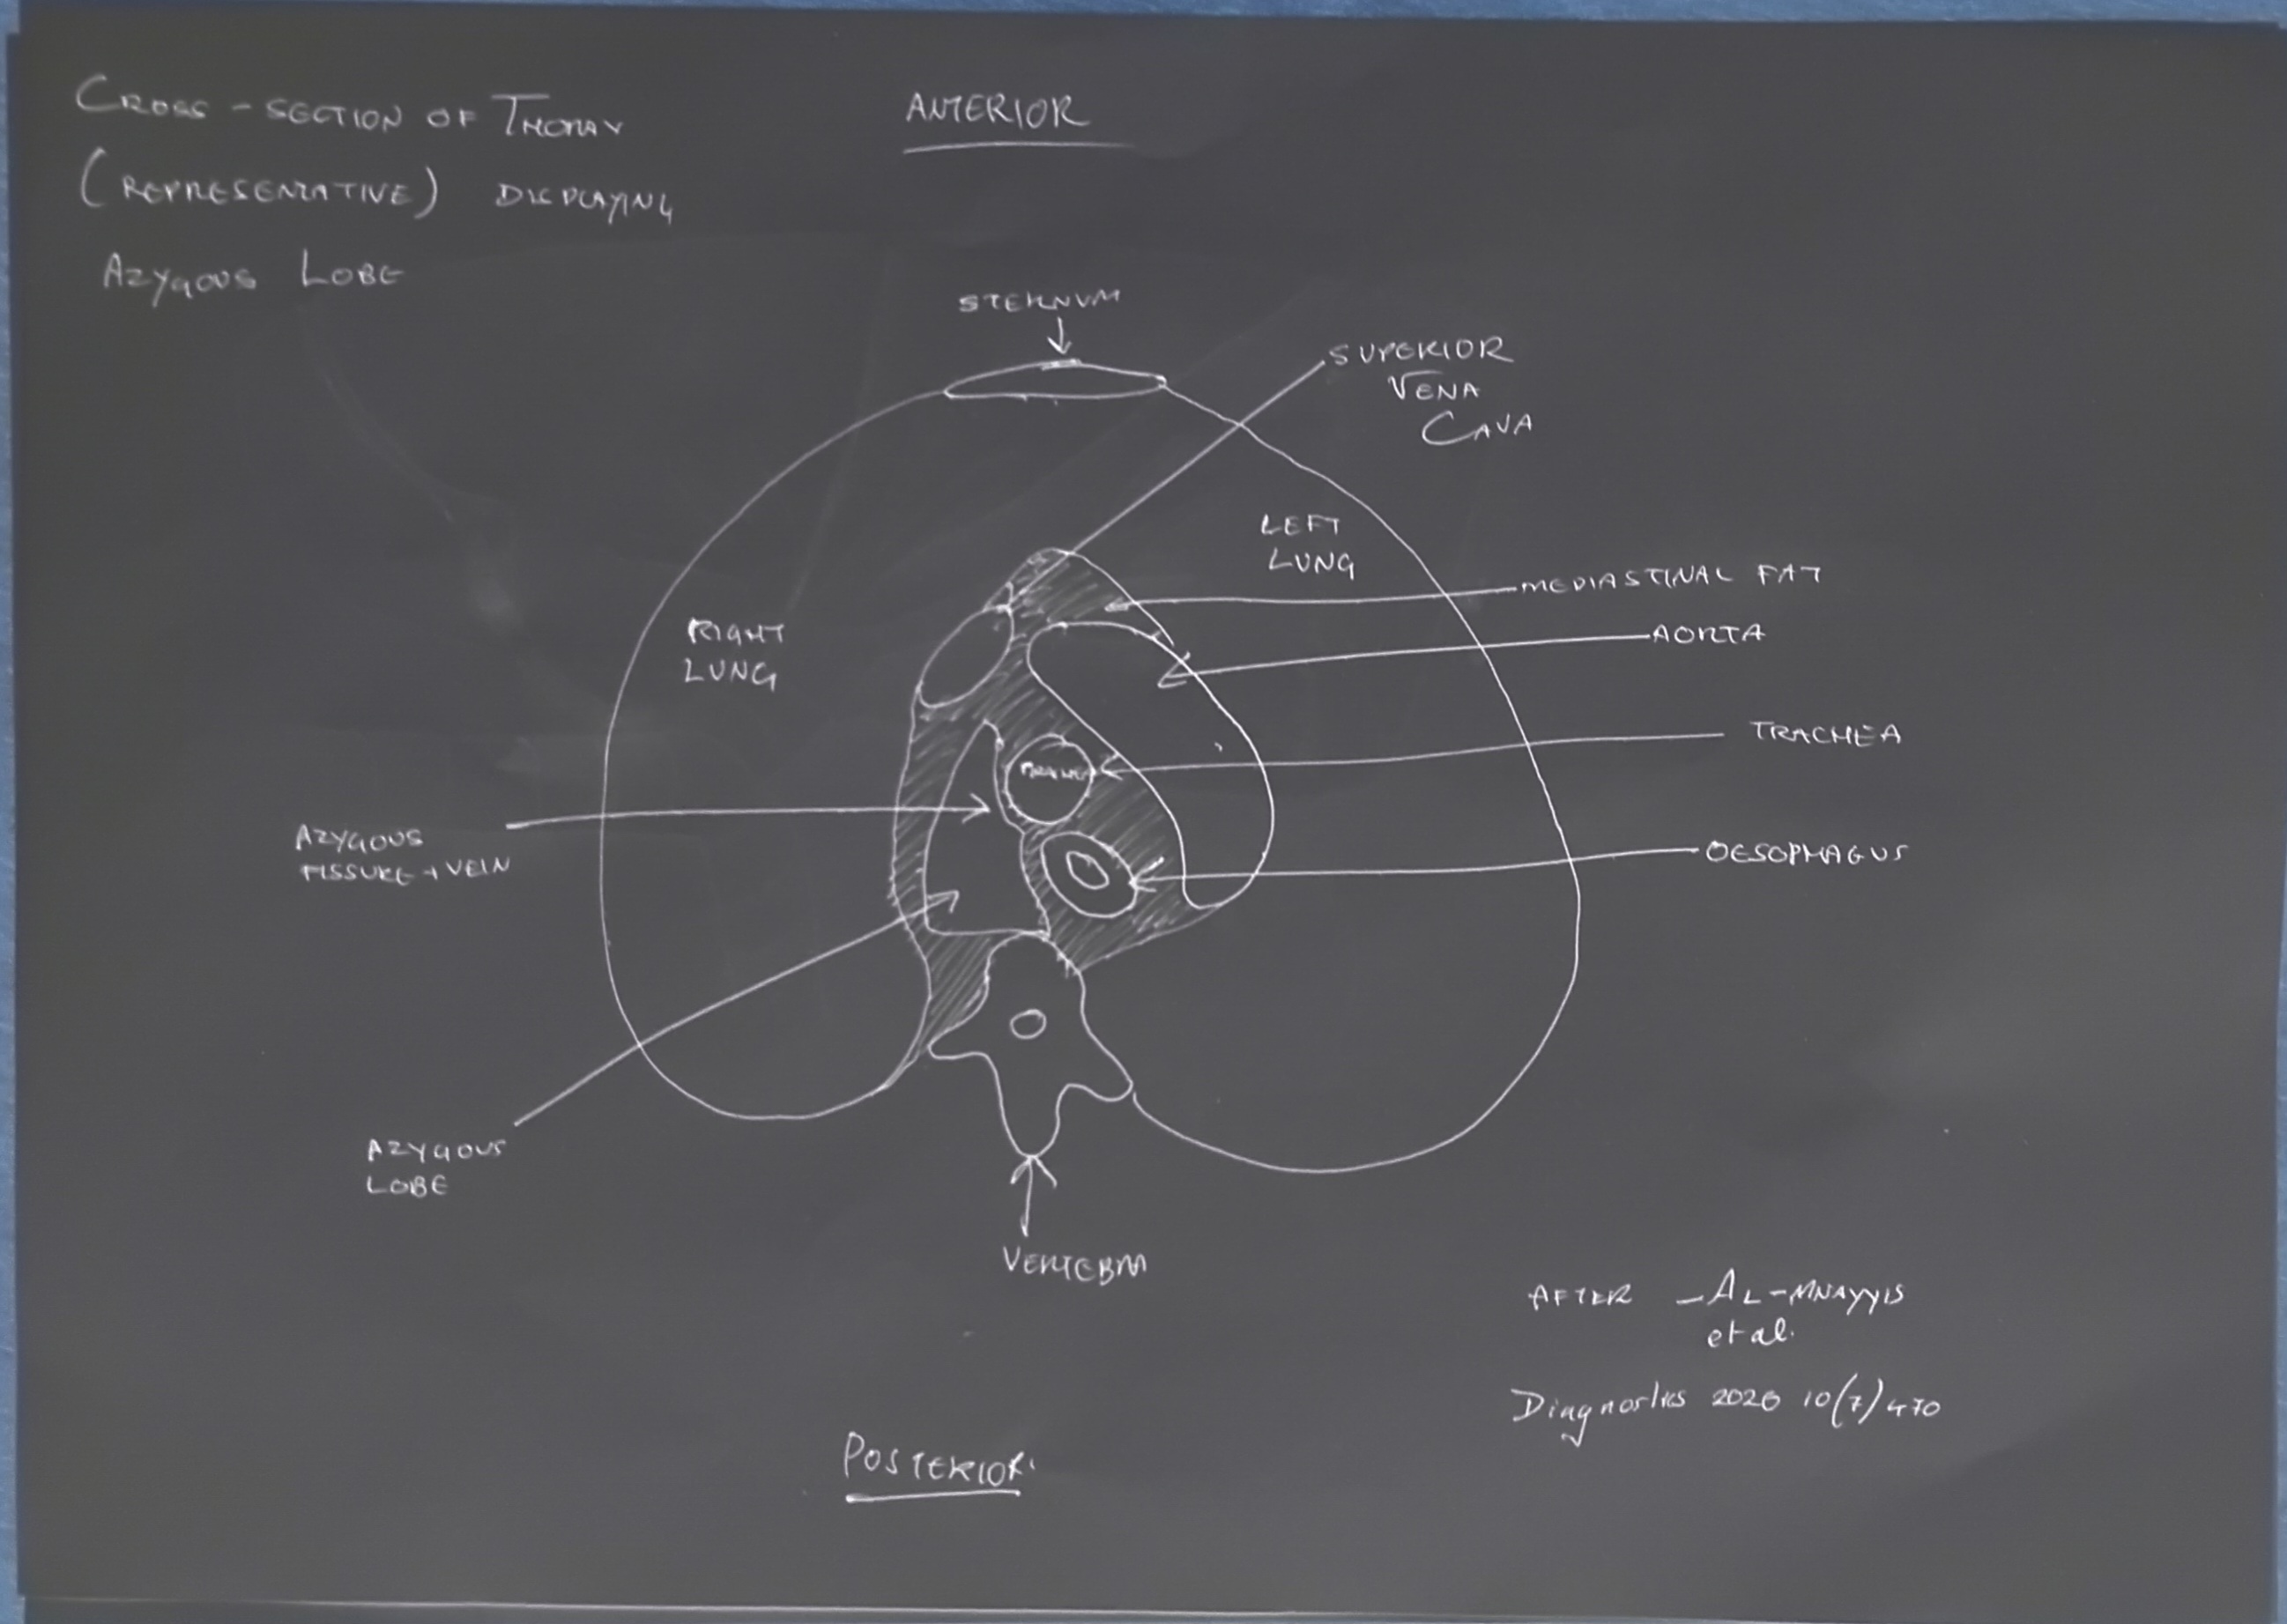 CROSS-SECTION OF THORAX
(REPRESENTATIVE) DISPLAYING
AZYGOUS LOBE
ANTERIOR
STERNUM
SUPERIOR
VENA
CAVA
LEFT
LUNG
MEDIASTINAL FAT
RIGHT
LUNG
AORTA
TRACHEA
TRACHEA
AZYGOUS
FISSURE + VEIN
OESOPHAGUS
AZYGOUS
LOBE
VERTEBRA
AFTER - AL-MNAYYIS
et al.
Diagnostics 2020 10(7) 470
POSTERIOR